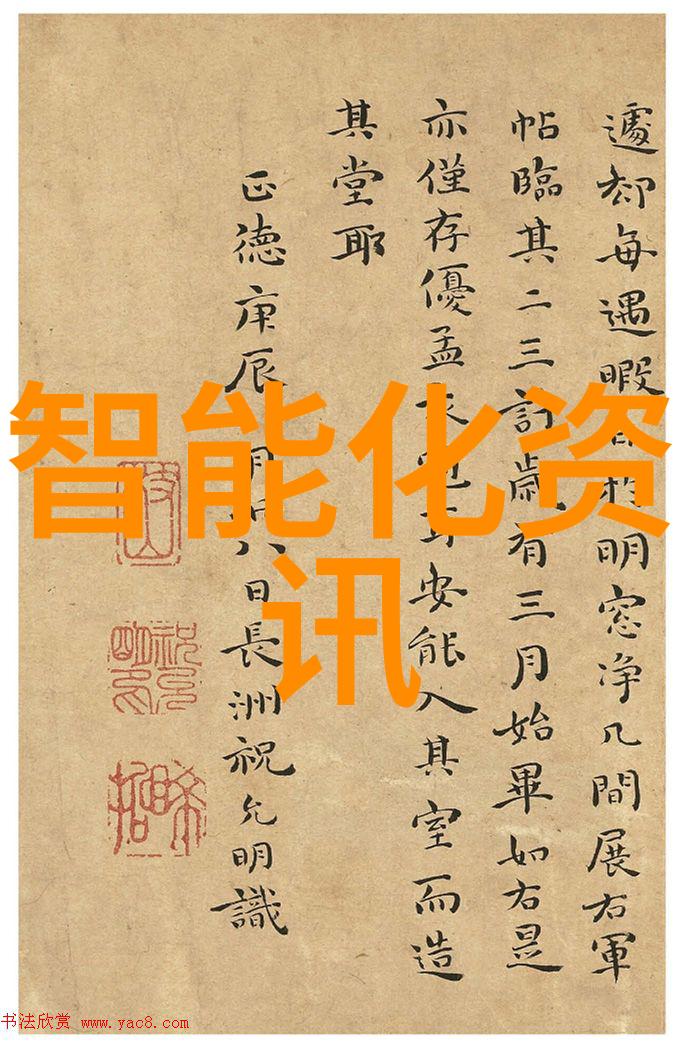 遽却每遇暇於明窓净几間展右軍
帖臨其二三計歲有三月始畢如右是
亦僅存優孟衣冠耳安能入其室而造
其堂耶
正德庚辰月八日長洲祝允明識
智能化资
讯
书法欣赏 www.yac8.com